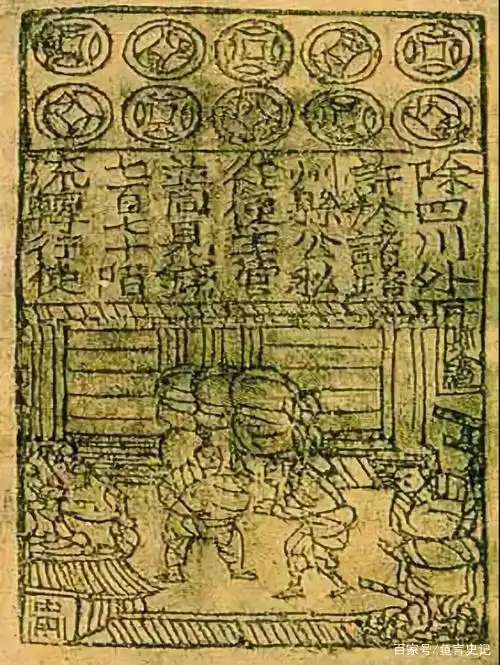 除四川外
許於諸路
州縣公私
從便主管
並同見錢
七百七十陌
流轉行使
百家号/鱼言史记